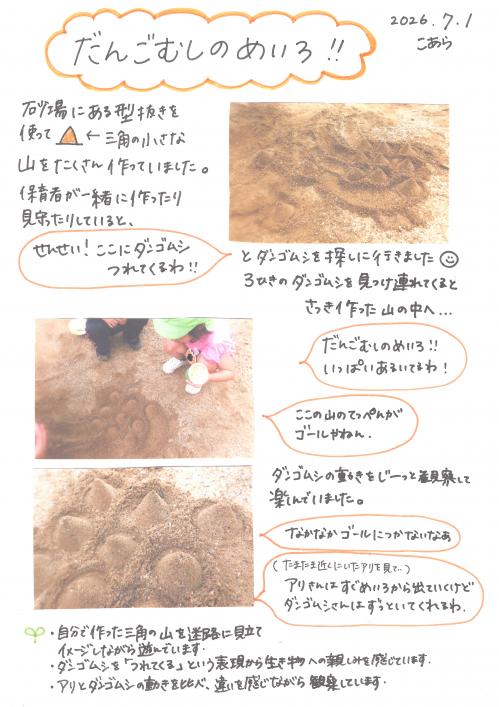 だんごむしのめいろ!!
2026.7.1
こあら
砂場にある型抜きを
使って ← 三角の小さな
山をたくさん作っていました。
保育者が一緒に作ったり
見守ったりしていると、
せんせい!ここにダンゴムシ
つれてくるわ!!
とダンゴムシを探しに行きました
3びきのダンゴムシを見つけ連れてくると
さっき作った山の中へ...
だんごむしのめいろ!!
いっぱいあるいてるわ!
ここの山のてっぺんが
ゴールやねん.
ダンゴムシの動きをじーっと観察して
楽しんでいました。
なかなかゴールにつかないなあ
(たまたま近くにいたアリを見て..)
アリさんはすぐめいろから出ていくけど
ダンゴムシさんはずっといてくれるわ.
・自分で作った三角の山を迷路に見立て
イメージしながら遊んでいます.
・ダンゴムシを「つれてくる」という表現から生き物への親しみを感じています.
・アリとダンゴムシの動きを比べ、違いを感じながら観察しています.